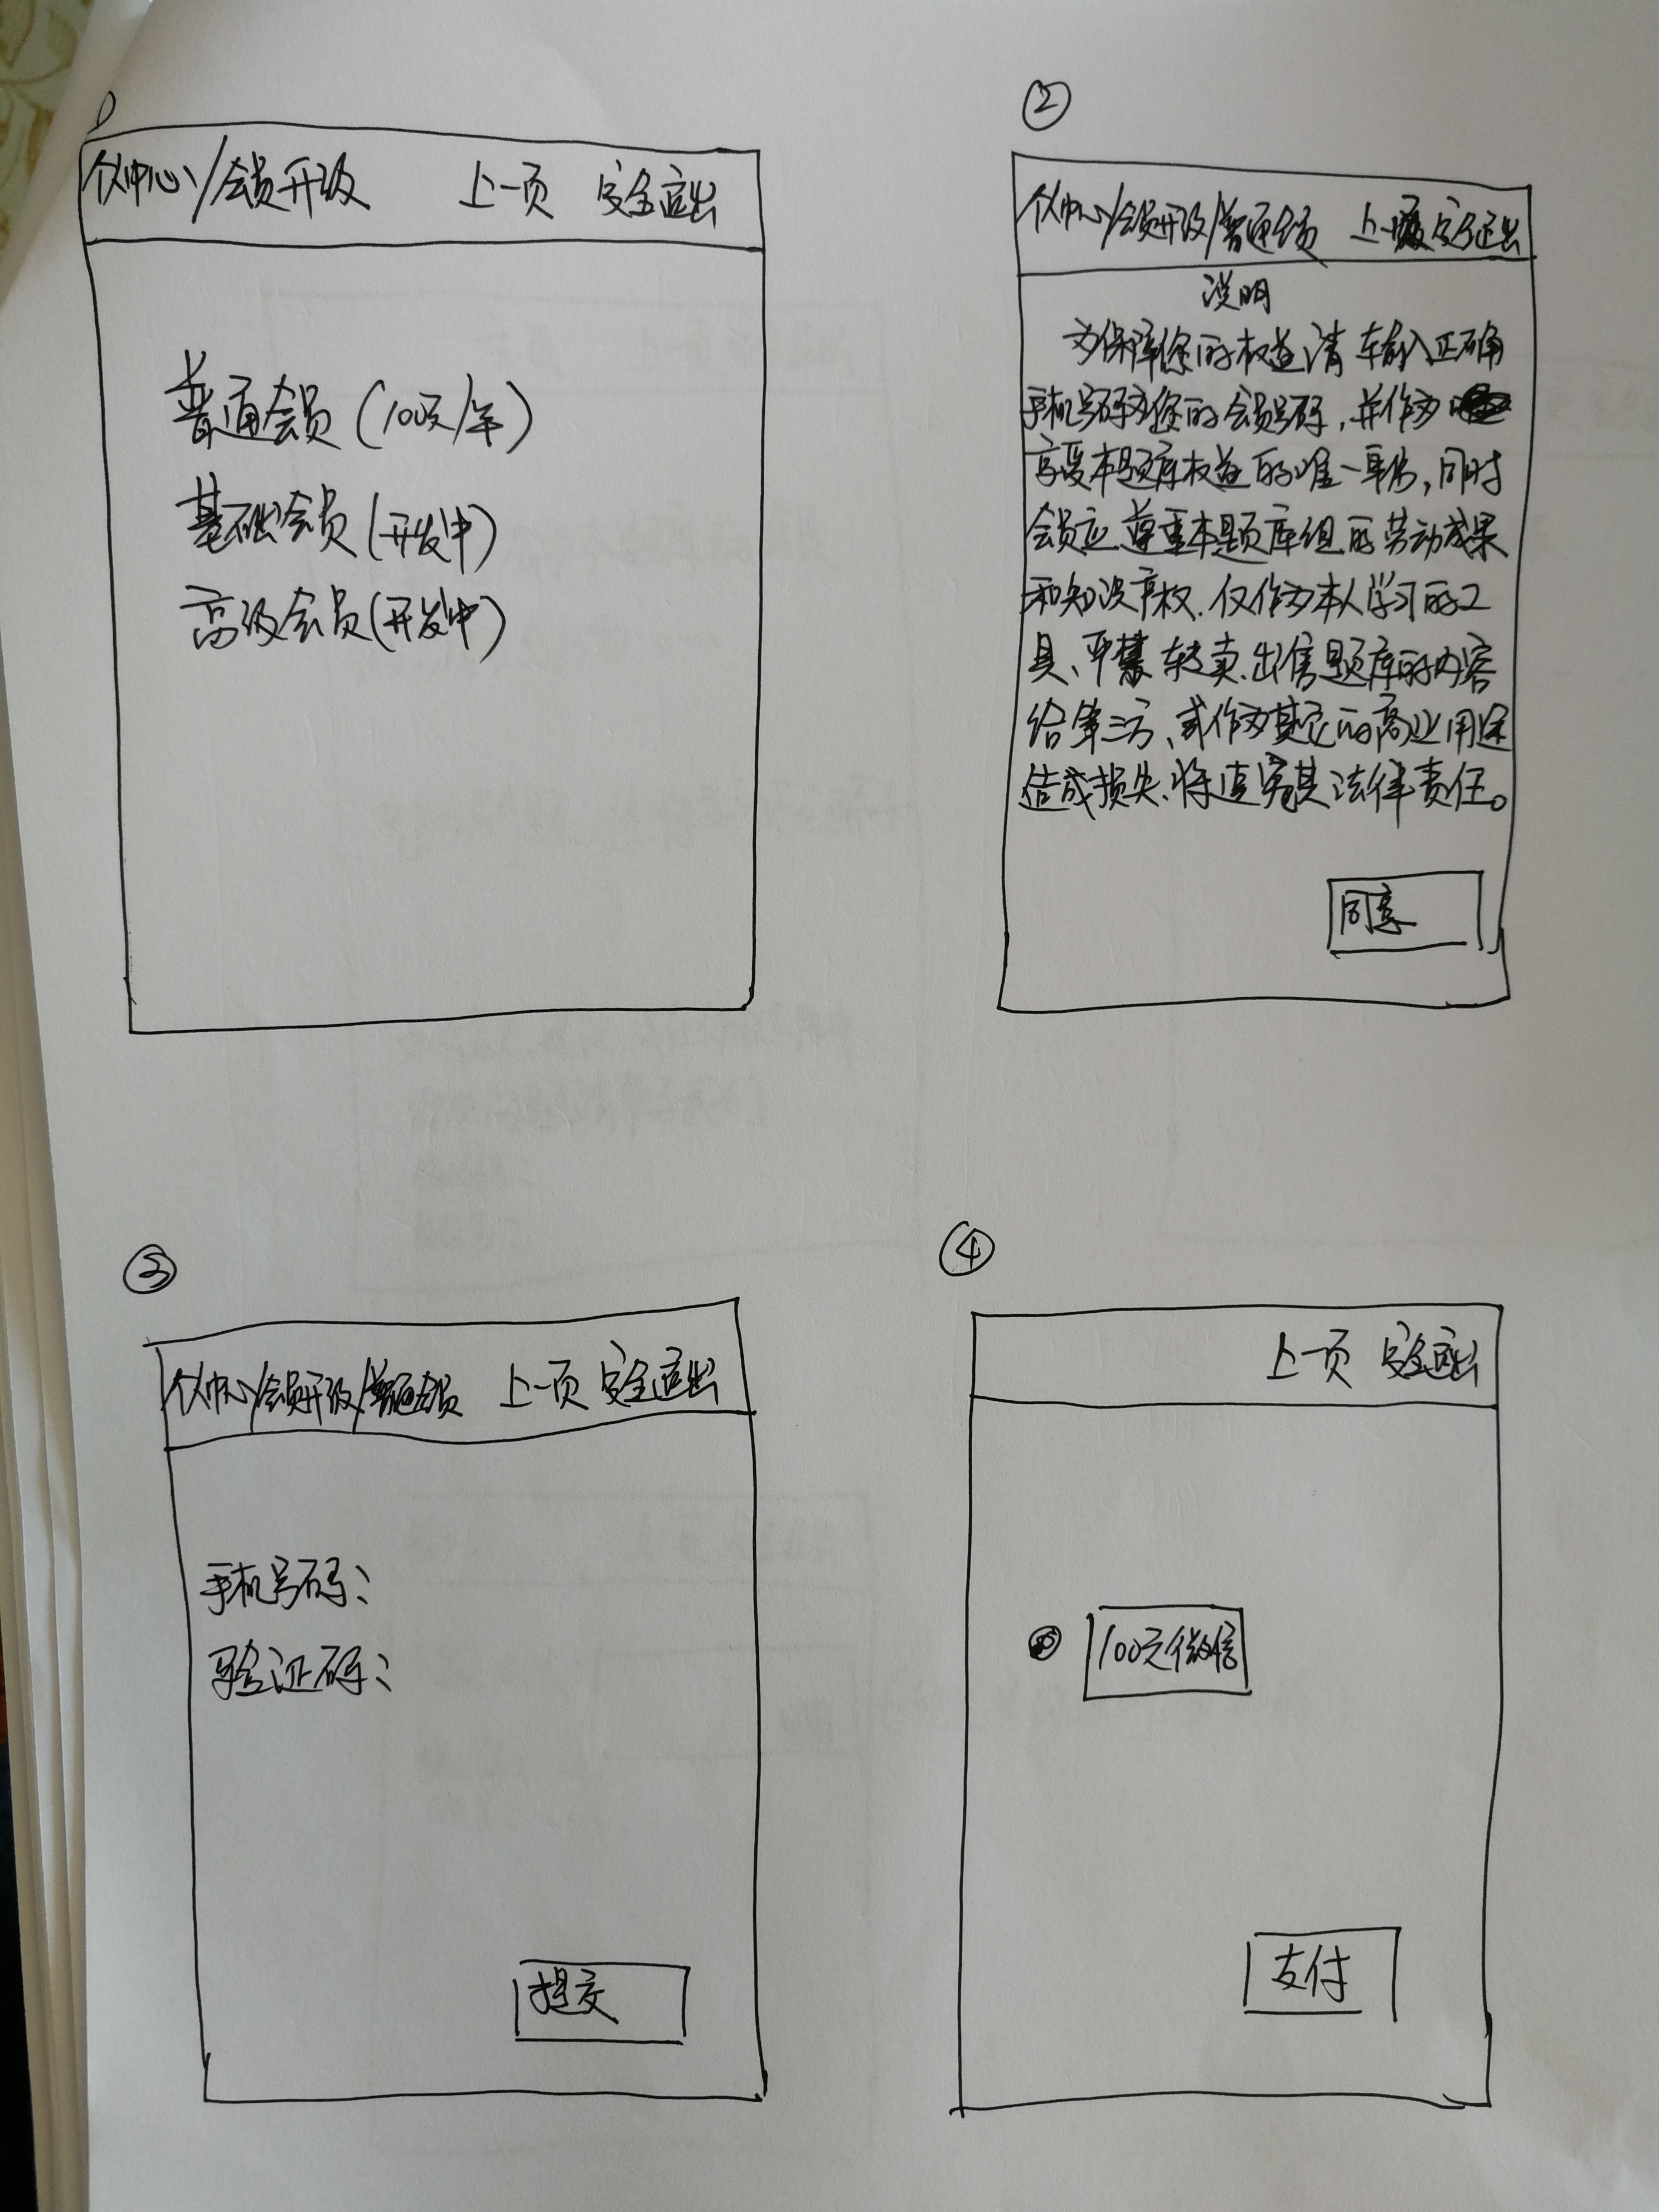 1
个人中心/会员升级 上一页 安全退出
普通会员(100元/年)
基础会员(开发中)
高级会员(开发中)
②
个人中心/会员升级/普通会员 上一页 安全退出
说明
为保障您的权益,请输入正确
手机号码为您的会员号码,并作为
享受本题库权益的唯一身份,同时
会员应尊重本题库组的劳动成果
和知识产权.仅作为本人学习的工
具、严禁转卖.出售题库的内容
给第三方、或作为其它的商业用途
造成损失、将追究其法律责任。
同意
③
个人中心/会员升级/普通会员 上一页 安全退出
手机号码:
验证码:
提交
④
上一页 安全退出
100元微信
支付